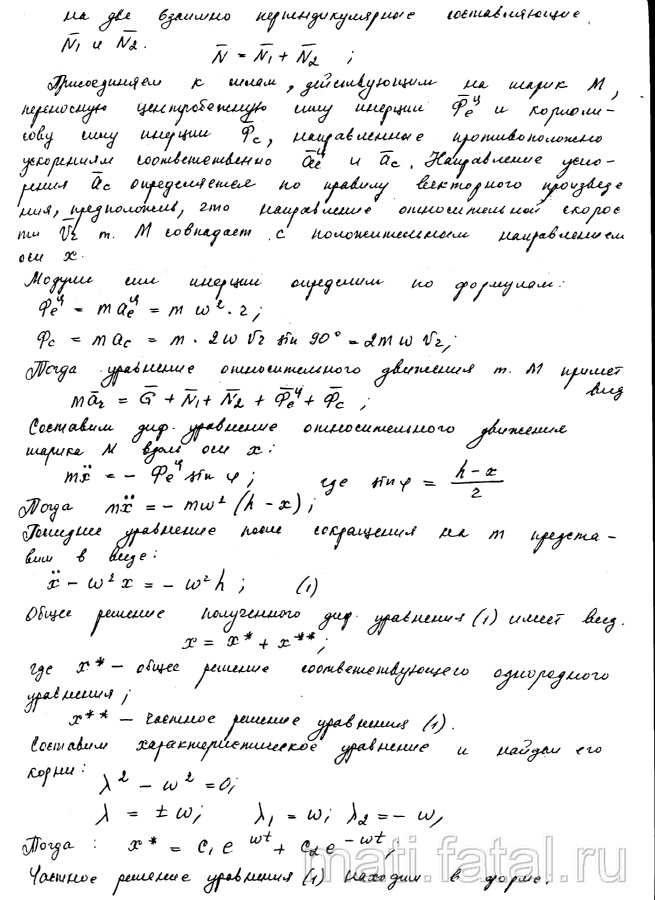 на две взаимно перпендикулярные составляющие
N̄₁ и N̄₂.
N̄ = N̄₁ + N̄₂ ;
Присоединяем к силам, действующим на шарик М,
переносную центробежную силу инерции Φ̄ₑᶸ и кориоли-
сову силу инерции Φ̄с, направленные противоположно
ускорениям соответственно āₑᶸ и āс. Направление уско-
рения āс определяется по правилу векторного произведе
ния, предположив, что направление относительной скорос
ти V̄r т. М совпадает с положительным направлением
оси x.
Модули сил инерции определим по формулам:
Φₑᶸ = m aₑᶸ = m ω² · r ;
Φс = m aс = m · 2ω Vr sin 90° = 2m ω Vr ;
Тогда уравнение относительного движения т. М примет
вид
m ār = Ḡ + N̄₁ + N̄₂ + Φ̄ₑᶸ + Φ̄с ;
Составим диф. уравнение относительного движения
шарика М вдоль оси x:
mẍ = − Φₑᶸ sin φ ; где sin φ = (h − x)/r
Тогда mẍ = − mω² (h − x) ;
Последнее уравнение после сокращения на m предста-
вим в виде:
ẍ − ω² x = − ω² h ; (1)
Общее решение полученного диф. уравнения (1) имеет вид.
x = x* + x** ;
где x* – общее решение соответствующего однородного
уравнения ;
x** – частное решение уравнения (1).
Составим характеристическое уравнение и найдем его
корни:
λ² − ω² = 0 ;
λ = ± ω ; λ₁ = ω ; λ₂ = − ω ;
Тогда : x* = C₁ e^ωt + C₂ e^−ωt ;
mati.fatal.ru
Частное решение уравнения (1) находим в форме.